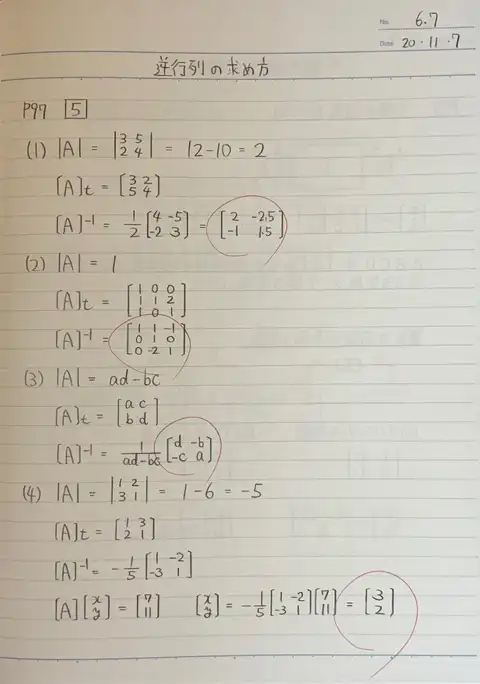 No. 6.7
Date 20・11・7
逆行列の求め方
P97 [5]
(1) |A| = |3 5; 2 4| = 12-10 = 2
[A]t = [3 2; 5 4]
[A]-1 = 1/2 [4 -5; -2 3] = [2 -2.5; -1 1.5]
(2) |A| = 1
[A]t = [1 0 0; 1 1 2; 1 0 1]
[A]-1 = [1 1 -1; 0 1 0; 0 -2 1]
(3) |A| = ad-bc
[A]t = [a c; b d]
[A]-1 = 1/ad-bc [d -b; -c a]
(4) |A| = |1 2; 3 1| = 1-6 = -5
[A]t = [1 3; 2 1]
[A]-1 = -1/5 [1 -2; -3 1]
[A][x; y] = [7; 11] [x; y] = -1/5 [1 -2; -3 1][7; 11] = [3; 2]